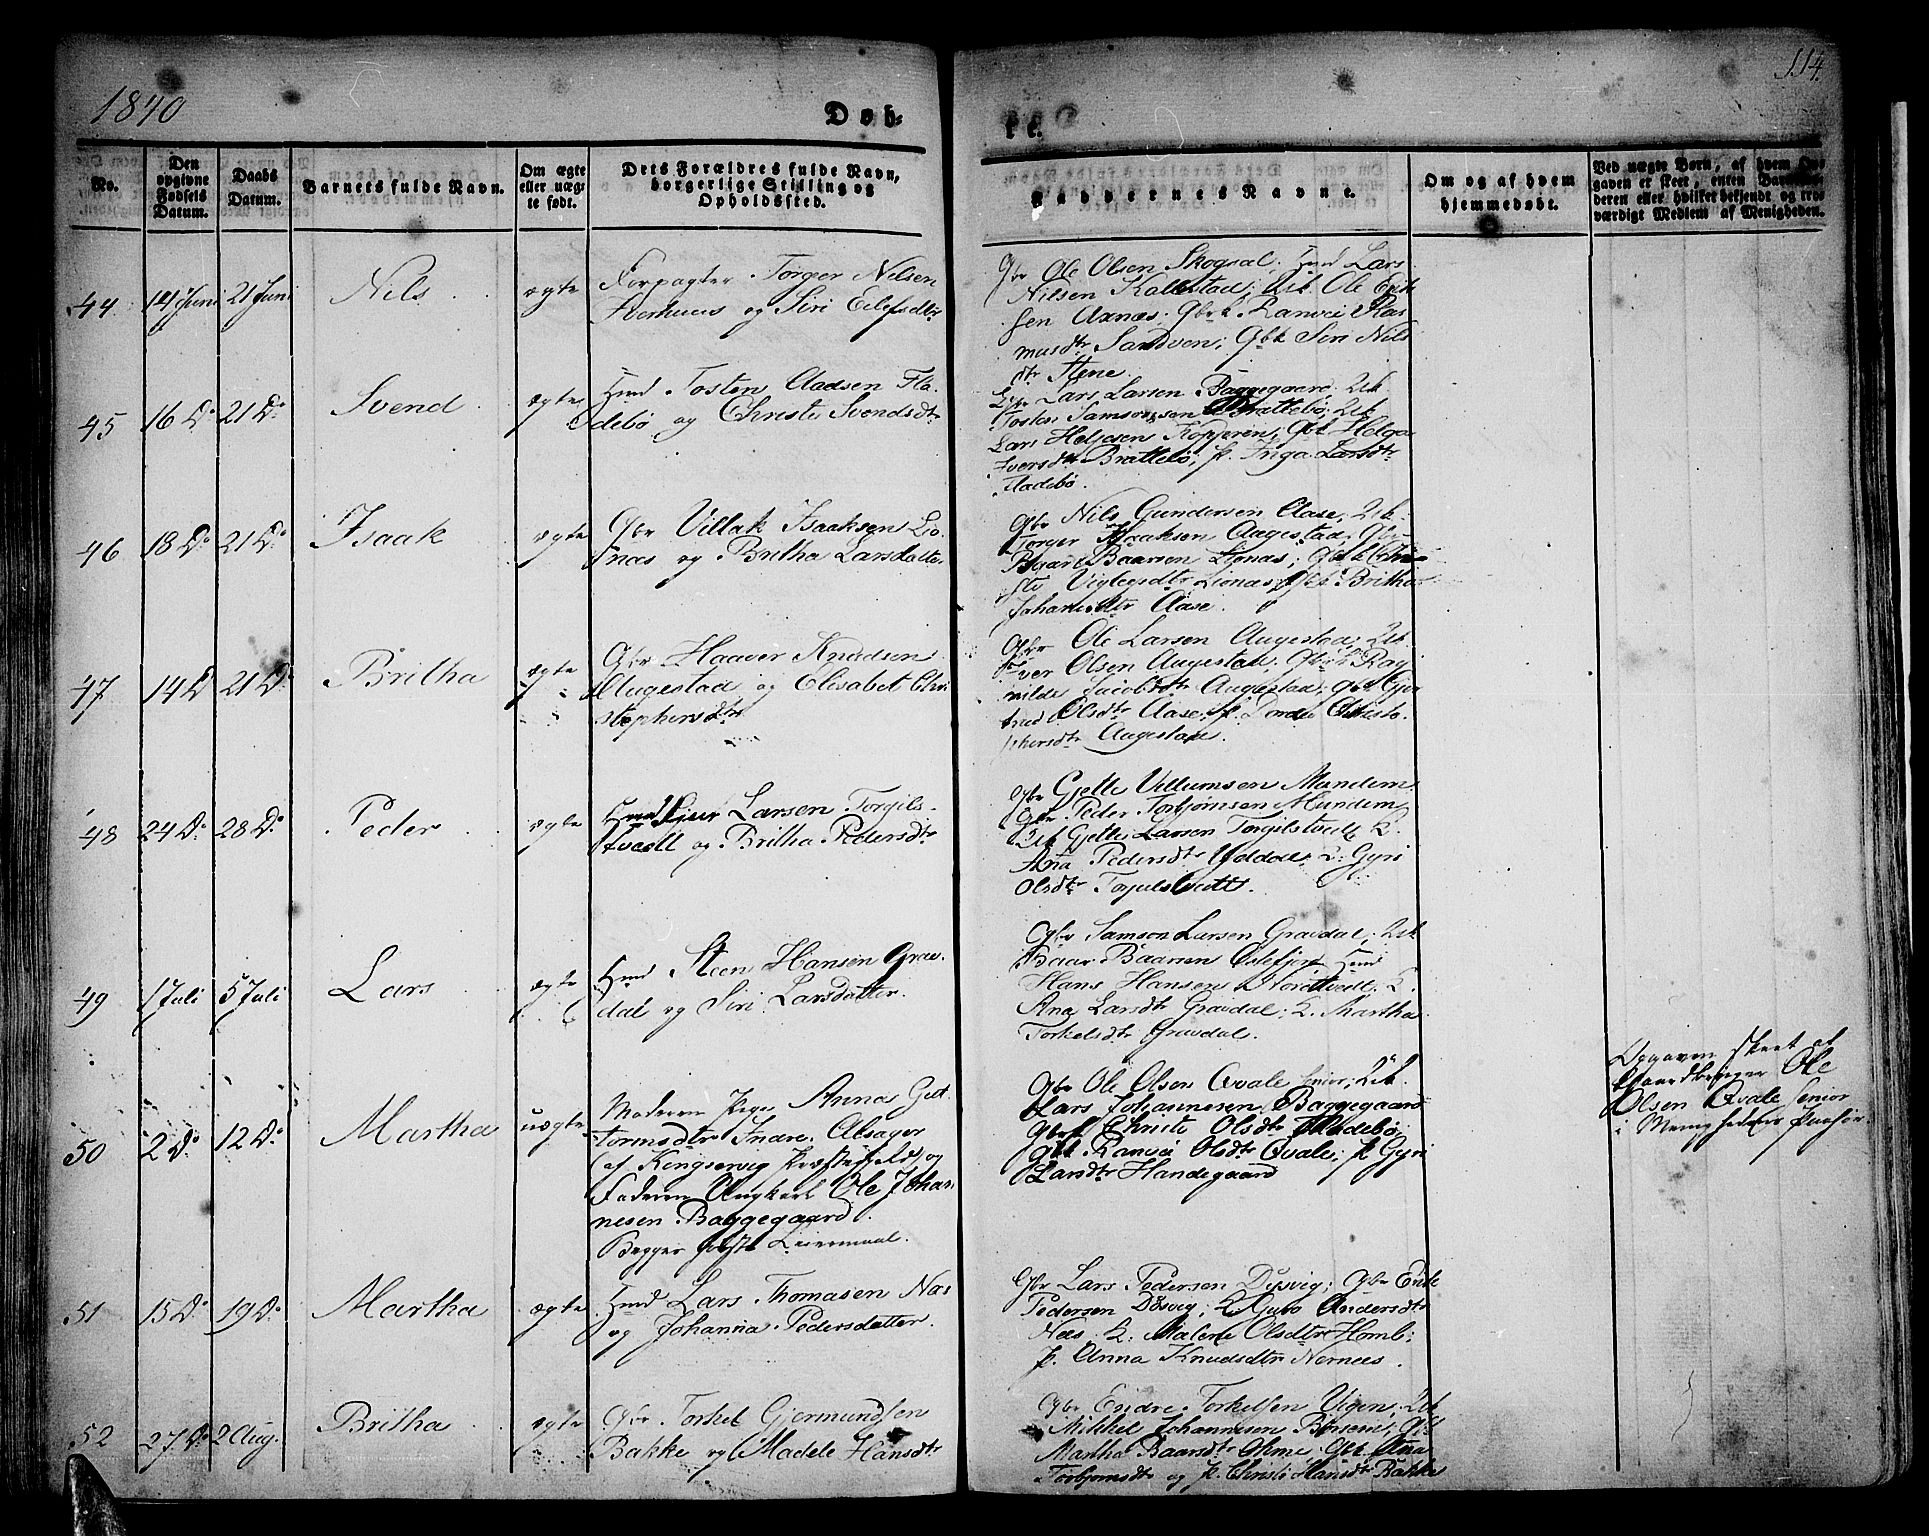 1840
Døb-
te.
114.
No.
Den
opgivne
Fødsels
Datum.
Daabs
Datum.
Barnets fulde Navn.
Om ægte
eller uæg-
te født.
Dets Forældres fulde Navn,
borgerlige Stilling og
Opholdssted.
Faddernes Navne.
Om og af hvem
hjemmedøbt.
Ved uægte Børn, af hvem Op-
gaven er skeet, enten Barnets
deren eller hvilket bekjendt og tro-
værdigt Medlem af Menigheden.
44 14 Juni 21 Juni Nils ægte
Forpagter Torger Nilsen
og Siri Eilefsdtr
Gbr Ole Olsen Skogsal; Hmd Lars
Nilsen Kollestad; Uk Ole Erik
sen Axnæs. Gbrk Ranvei Ras
musdtr Sandven; Gbk Siri Nils
dtr Stene.
45 16 Do 21 Do Svend ægte
Hmd Tosten Aadsen Fla-
debø og Christi Svendsdtr
Lars Larsen Baggegaard; Uk
Tosten Samsonsen Brattebø; Uk
Lars Heljesen Kopperen; Gbk Helga
Iversdtr Brattebø; p. Inga Larsdtr
Fladebø.
46 18 Do 21 Do Isaak ægte
Gbr Villak Isaaksen Lio-
næs og Britha Larsdatter
Gbr Nils Gundersen Aase; Uk
Torger Isaaksen Augestad; Gbr
Baard Baarsen Lionæs; Gbk Chri-
sti Viglegsdtr Lionæs; Gbk Britha
Johannesdtr Aase.
47 14 D 21 Do Britha ægte
Gbr Haaver Knudsen
Augestad og Elisabet Chri
stophersdtr
Gbr Ole Larsen Augestad; Uk
Iver Olsen Augestad; Gbrk Rag
nilde Jacobsdtr Augestad; Gbk Gjer
trud Olsdtr Aase; p. Dordei Christo-
phersdtr Augestad.
48 24 Do 28 Do Peder ægte
Hmd Larsen Torgils-
tvedt og Britha Pedersdtr
Gbr Gjelle Villumsen Mundem
Gbr Peder Torbjørnsen Mundem
Uk Gjelle Larsen Torgilstvedt K.
Ana Pedersdtr Yddal; K. Gyri
Olsdtr Torgilstvedt.
49 1 Juli 5 Juli Lars ægte
Hmd Steen Hansen Grav-
dal og Siri Larsdatter.
Gbr Samson Larsen Gravdal; Uk
Baar Baarsen Ølefjor; Hmd
Hans Hansen Storetvedt; K.
Ana Larsdtr Gravdal; K. Martha
Torkelsdtr Gravdal.
50 2 Do 12 Do Martha uægte
Moderen Pige Annas Gut
tormsdtr Indre Alsager
af Kingservig Præstegield, og
Faderen Ungkarl Ole Johan
nesen Baggegaard.
Begges første Leiermaal.
Gbr Ole Olsen Qvale senior; Uk
Lars Johannesen Baggegaard
Gbrk Christi Olsdtr Fladebø;
Gbk Ranvei Olsdtr Qvale; p Gyri
Larsdtr Handegaard
Opgaven skeet af
Gaardbruger Ole
Olsen Qvale senior
i Menigheden
51 15 Do 19 Do Martha ægte
Hmd Lars Thomasen Næs
og Johanna Pedersdatter.
Gbr Lars Pedersen Dysvig; Gbr Erik
Pedersen Dysvig; K Guro Andersdtr
Næs. K. Malene Olsdtr Homb;
p. Anna Knudsdtr Nernæs.
52 27 Do 2 Aug. Britha ægte
Gbr Torkel Gjermundsen
Bakke og Madele Hansdtr
Gbr Endre Torkelsen Vigen; Uk
Mikkel Johannesen Børsem; Gbk
Martha Baarsdtr Ohme; Gbk Ana
Torbjornsdtr og p. Christi Hansdtr Bakke